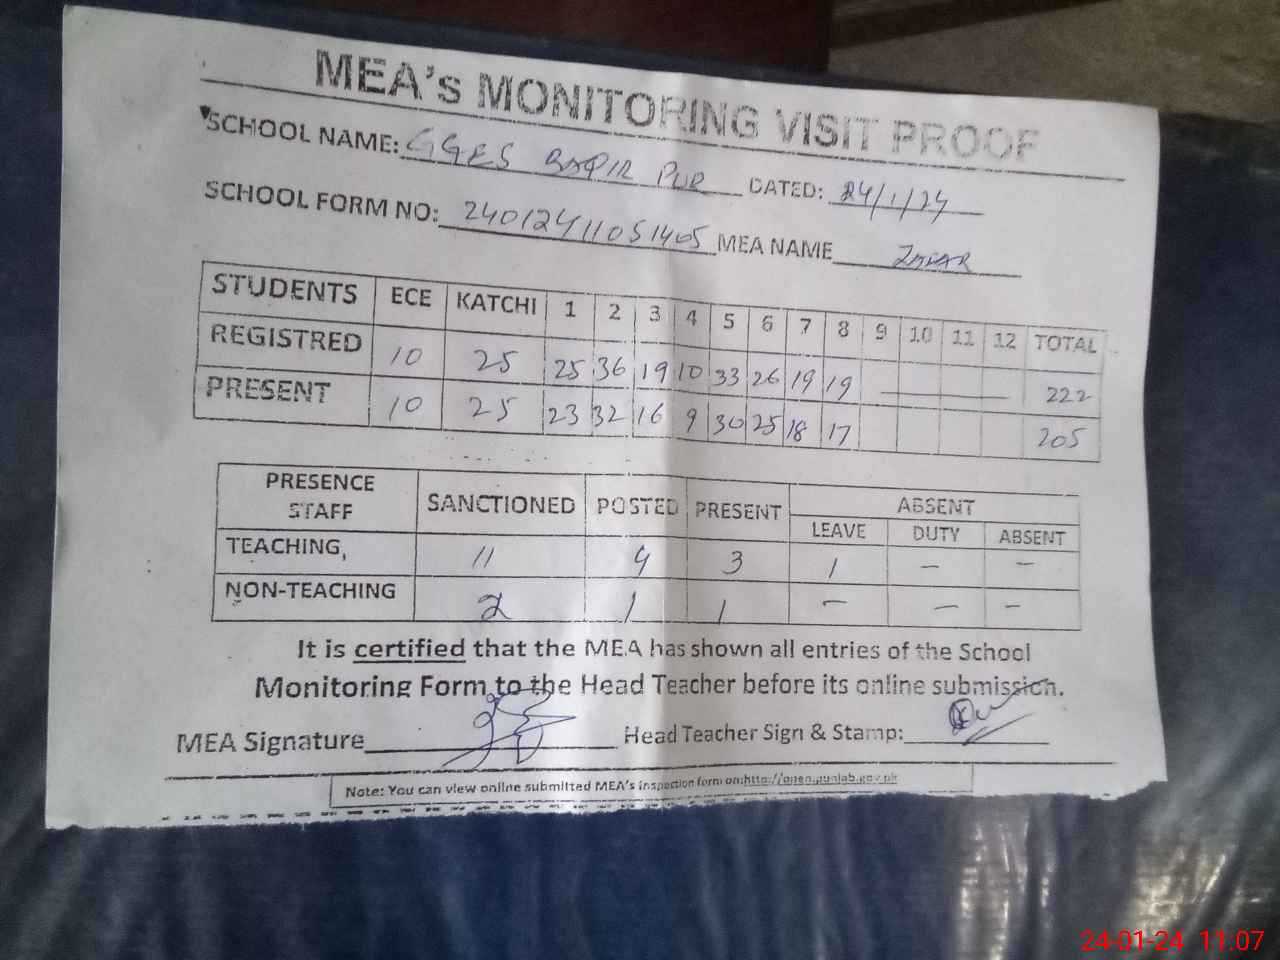 MEA's MONITORING VISIT PROOF
SCHOOL NAME: GGES BAQIR PUR DATED: 24/1/24
SCHOOL FORM NO: 24012411051405 MEA NAME ZAFAR
STUDENTS ECE KATCHI 1 2 3 4 5 6 7 8 9 10 11 12 TOTAL
REGISTRED 10 25 25 36 19 10 33 26 19 19 222
PRESENT 10 25 23 32 16 9 30 25 18 17 205
PRESENCE STAFF SANCTIONED POSTED PRESENT ABSENT
LEAVE DUTY ABSENT
TEACHING, 11 4 3 1 — —
NON-TEACHING 2 1 1 — — —
It is certified that the MEA has shown all entries of the School
Monitoring Form to the Head Teacher before its online submission.
MEA Signature Head Teacher Sign & Stamp:
Note: You can view online submitted MEA's inspection form on:http://open.punjab.gov.pk
24-01-24 11:07